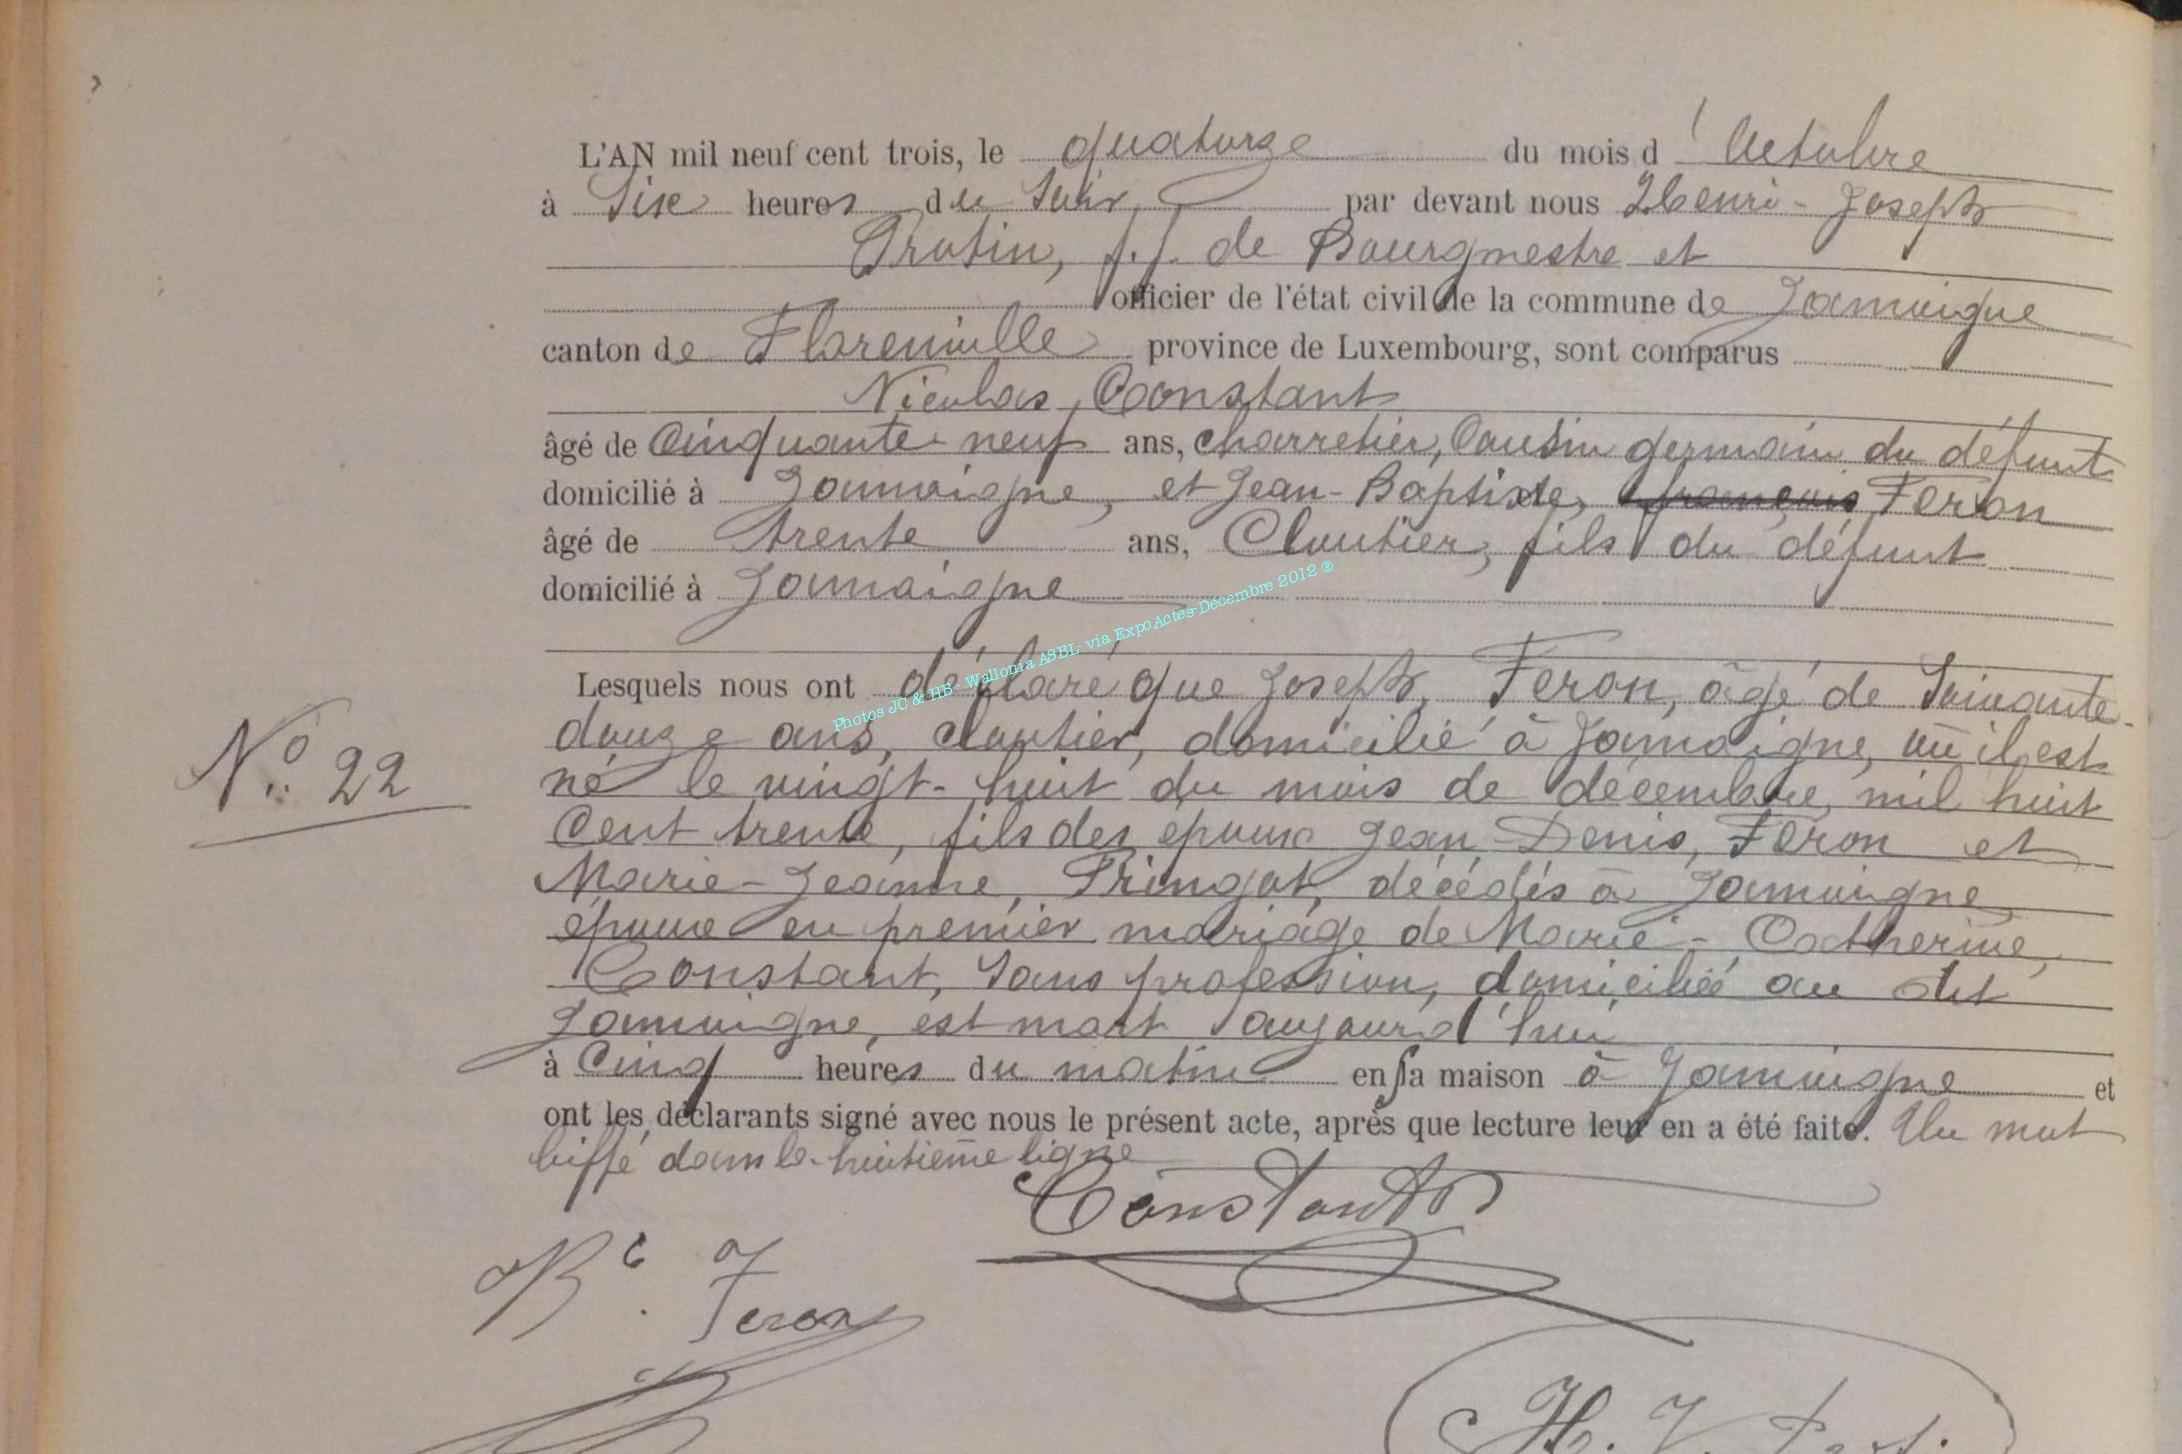 L'AN mil neuf cent trois, le quatorze du mois d'Octobre
à Six heures du Soir, par devant nous Henri-Joseph
Protin, f.f. de Bourgmestre et
officier de l'état civil de la commune de Jamoigne
canton de Florenville province de Luxembourg, sont comparus
Nicolas, Constant
âgé de Cinquante-neuf ans, charretier, Cousin germain du défunt
domicilié à Jamoigne, et Jean-Baptiste, françois Feron
âgé de trente ans, Cloutier, fils du défunt
domicilié à Jamoigne
Lesquels nous ont déclaré que Joseph, Feron, âgé de Soixante-
douze ans, cloutier, domicilié à Jamoigne, où il est
né le vingt-huit du mois de décembre, mil huit
Cent trente, fils des epoux Jean-Denis, Feron et
Marie-Jeanne, Pringot, décédés à Jamoigne,
époux en premier mariage de Marie-Catherine,
Constant, Sans profession, domiciliée au dit
Jamoigne, est mort aujourd'hui
à Cinq heures du matin en sa maison à Jamoigne et
ont les déclarants signé avec nous le présent acte, après que lecture leur en a été faite. Un mot
biffé dans la huitième ligne
N° 22
Constant
Bte. Feron
H. J. Proti
Photos JC & HB - Wallonia ASBL, via ExpoActes-Décembre 2012 ®